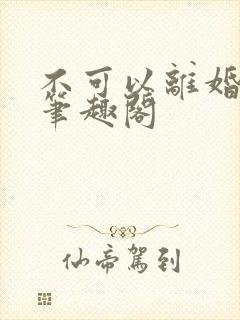 不可以離婚
筆趣閣
仙帝駕到